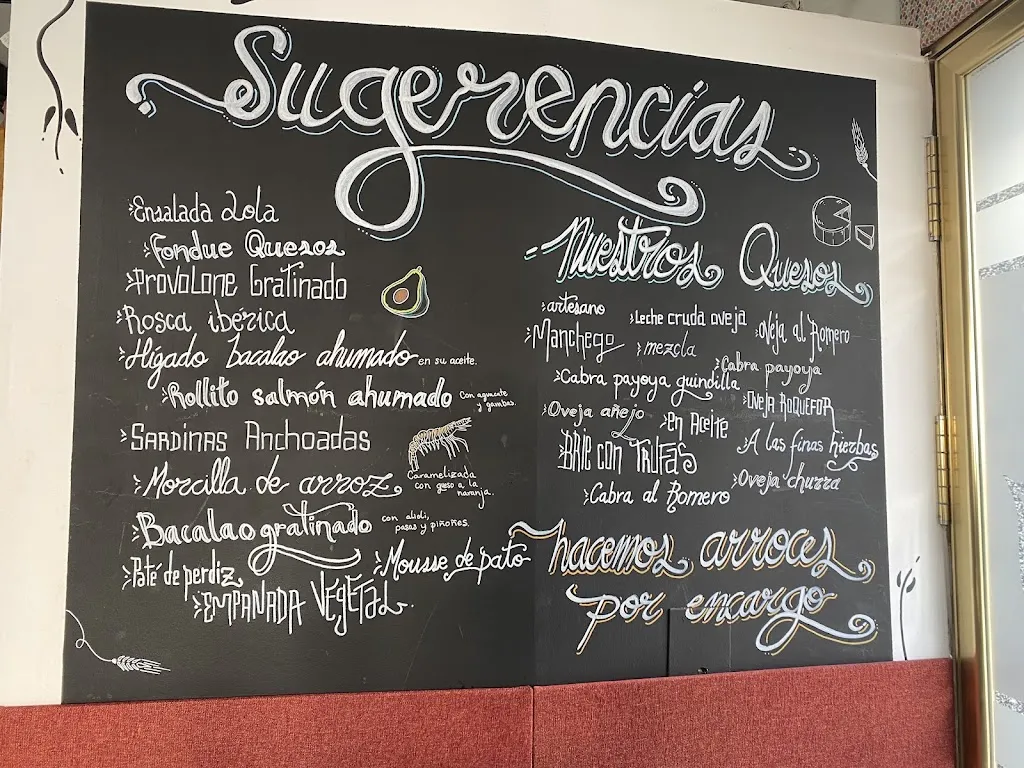 Sugerencias
Ensalada Lola
Fondue Quesos
Provolone Gratinado
Rosca ibérica
Hígado bacalao ahumado en su aceite.
Rollito salmón ahumado con aguacate
y gambas.
Sardinas Anchoadas
Morcilla de arroz Caramelizada
con queso a la
naranja.
Bacalao gratinado con alioli,
pasas y piñones.
Paté de perdiz
Mousse de pato
Empanada Vegetal.
Nuestros Quesos
artesano
Leche cruda oveja
Oveja al Romero
Manchego
mezcla
Cabra payoya
Cabra payoya guindilla
Oveja Roquefor
Oveja añejo
en Aceite
A las finas hierbas
Brie con Trufas
Oveja churra
Cabra al Romero
hacemos arroces
por encargo